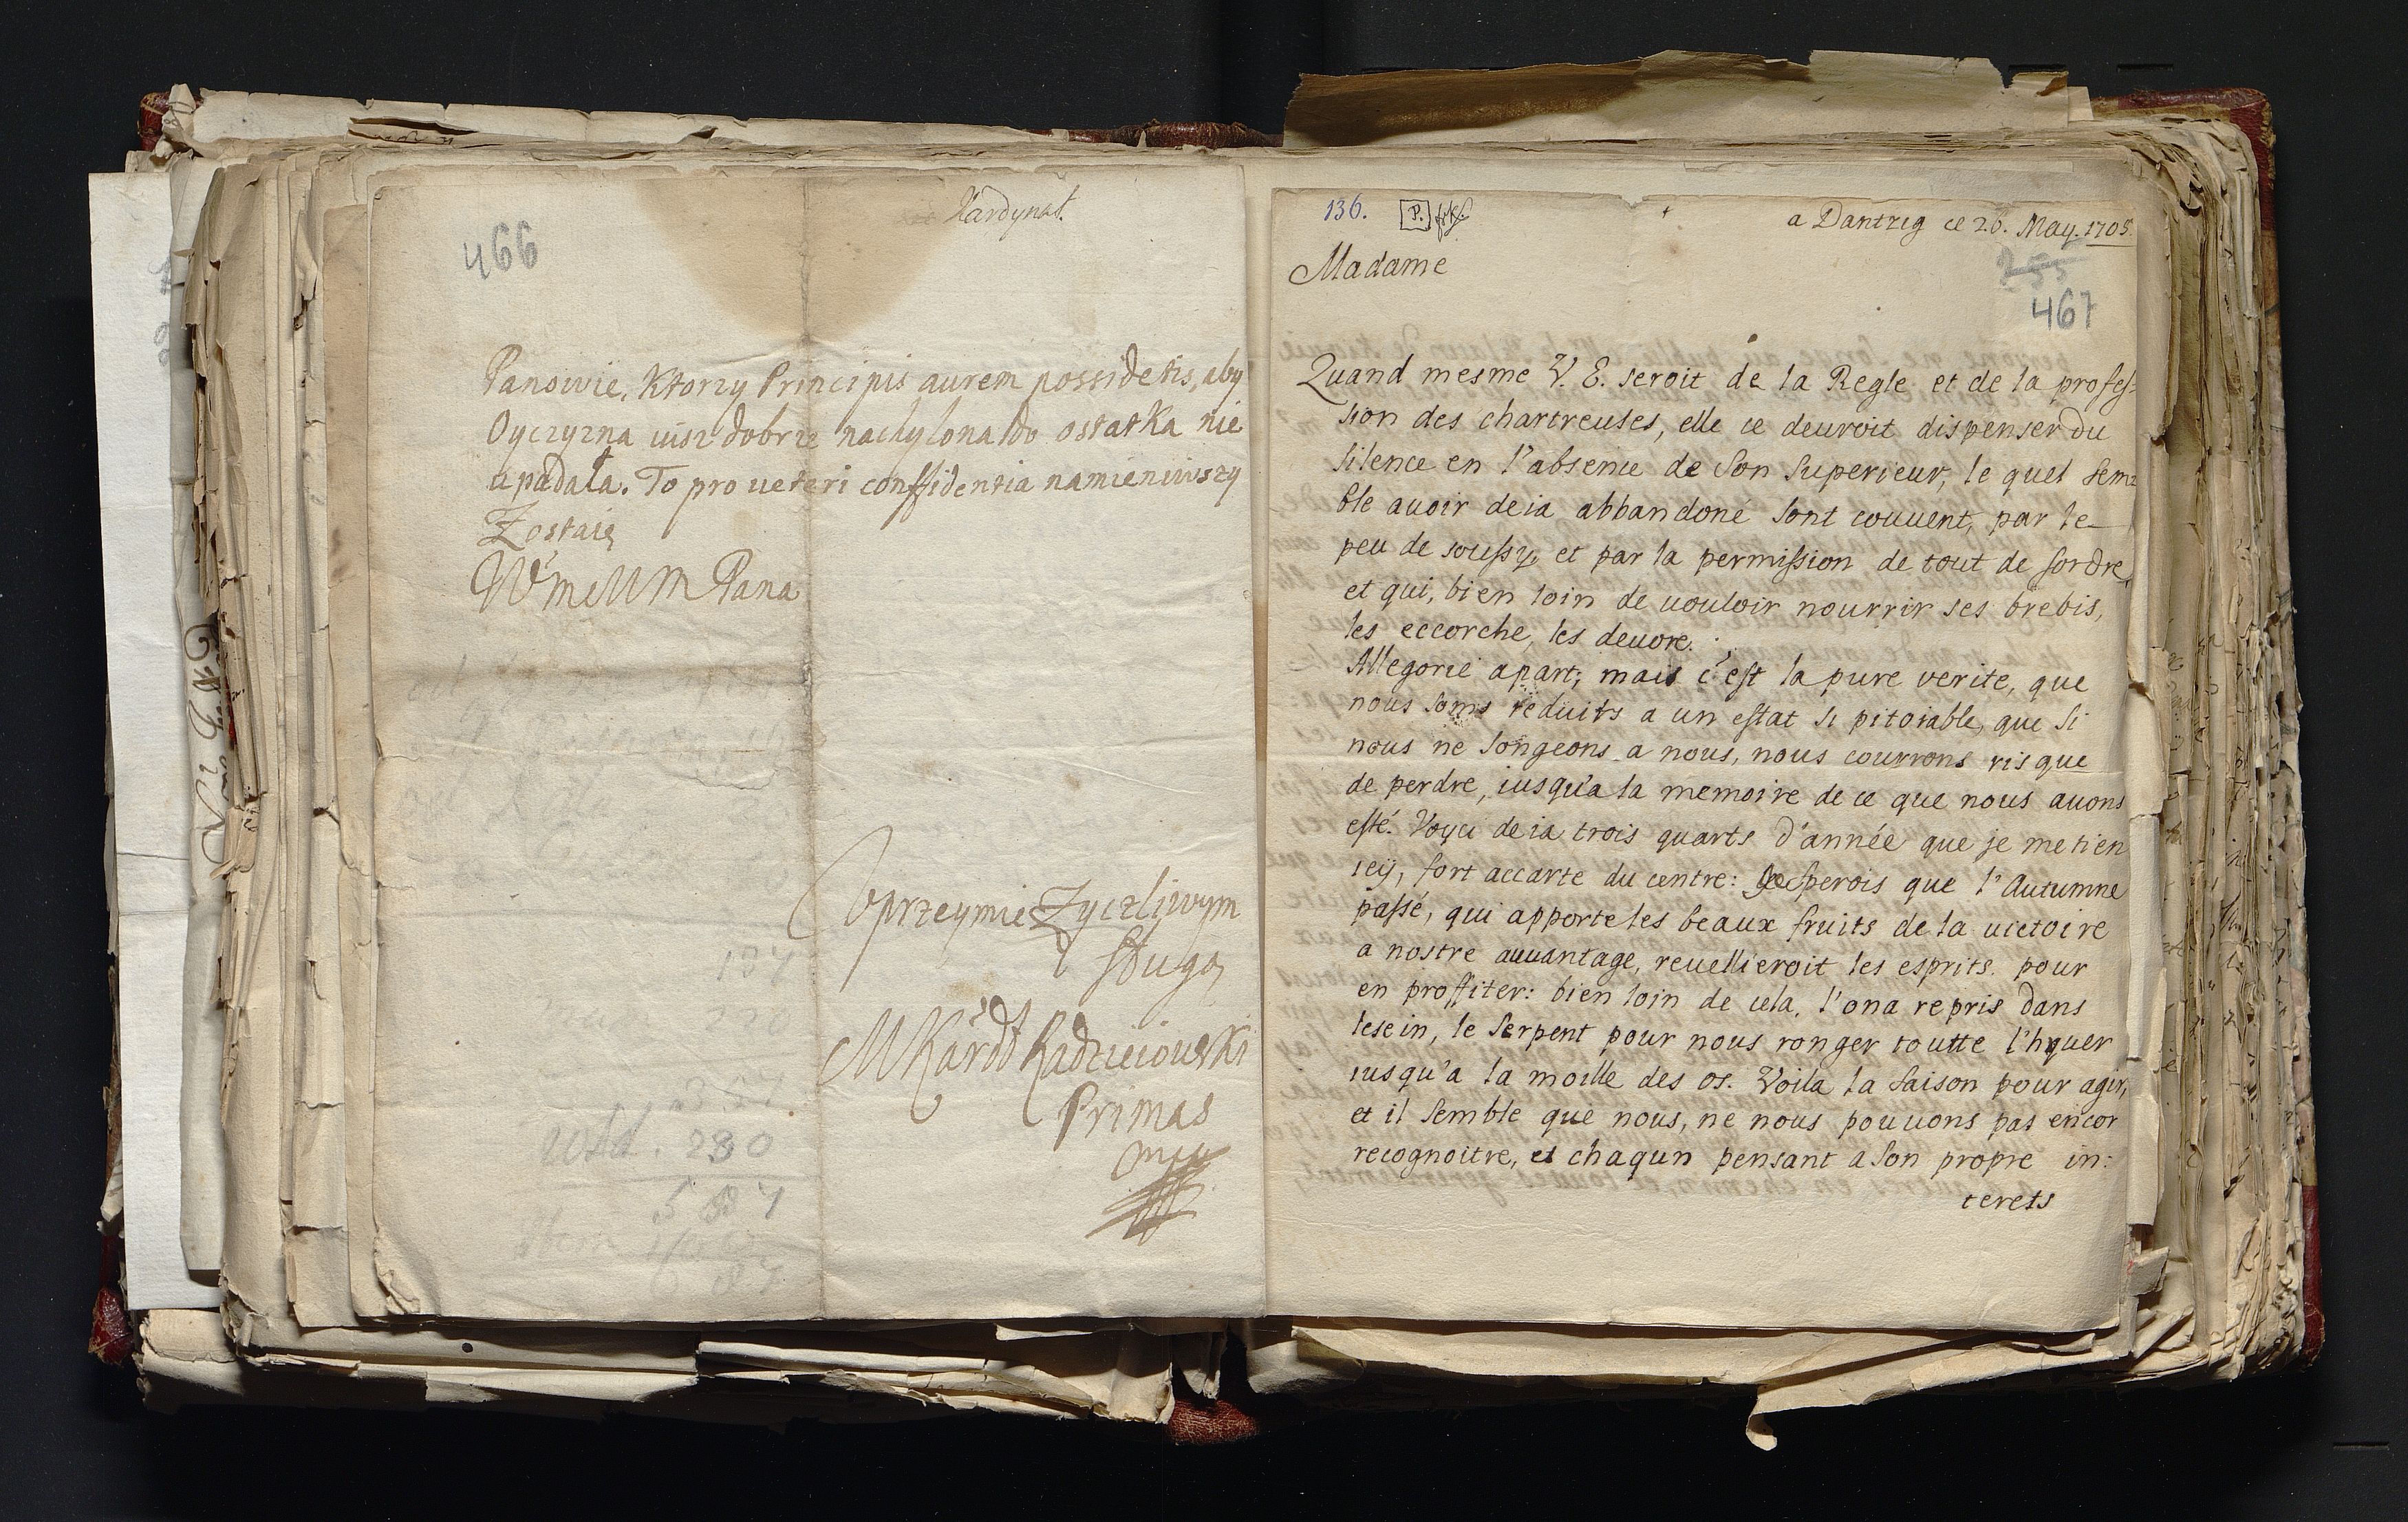 Kardynał.
466
Panowie, Ktorzy Principis aurem possidetis, aby
Oyczyzna iusz dobrze nachylona do ostatka nie
upadała. To pro ueteri conffidentia namieniwszy
Zostaię
WmMM Pana
Uprzeymie Zyczliwym
sługą
MKardł Radzieiouski
Primas
mp
137
230
280
136. P.
a Dantzig ce 26. May. 1705.
Madame
255
467
Quand mesme V. E. seroit de la Regle et de la profes-
sion des chartreuses, elle ce deuroit dispenser du
silence en l'absence de son superieur, le quel sem=
ble auoir deia abbandoné sont couuent, par le
peu de soussy, et par la permission de tout de sordre,
et qui, bien loin de uouloir nourrir ses brebis,
les eccorche, les deuore.
Allegorie apart; mais c'est la pure verite, que
nous soms reduits a un estat si pitoiable, que si
nous ne songeons a nous, nous courrons risque
de perdre, iusqu'a la memoire de ce que nous auons
esté. Voyci deia trois quarts d'année que je me tien
icy, fort accarte du centre: Jesperois que l'Autumne
passé, qui apporte les beaux fruits de la uictoire
a nostre auuantage, reuellieroit les esprits pour
en proffiter: bien loin de cela, l'ona repris dans
lesein, le serpent pour nous ronger toutte l'hyuer
iusqu'a la moille des os. Voila la saison pour agir,
et il semble que nous, ne nous pouuons pas encor
recognoitre, et chaqun pensant a son propre in:
terets